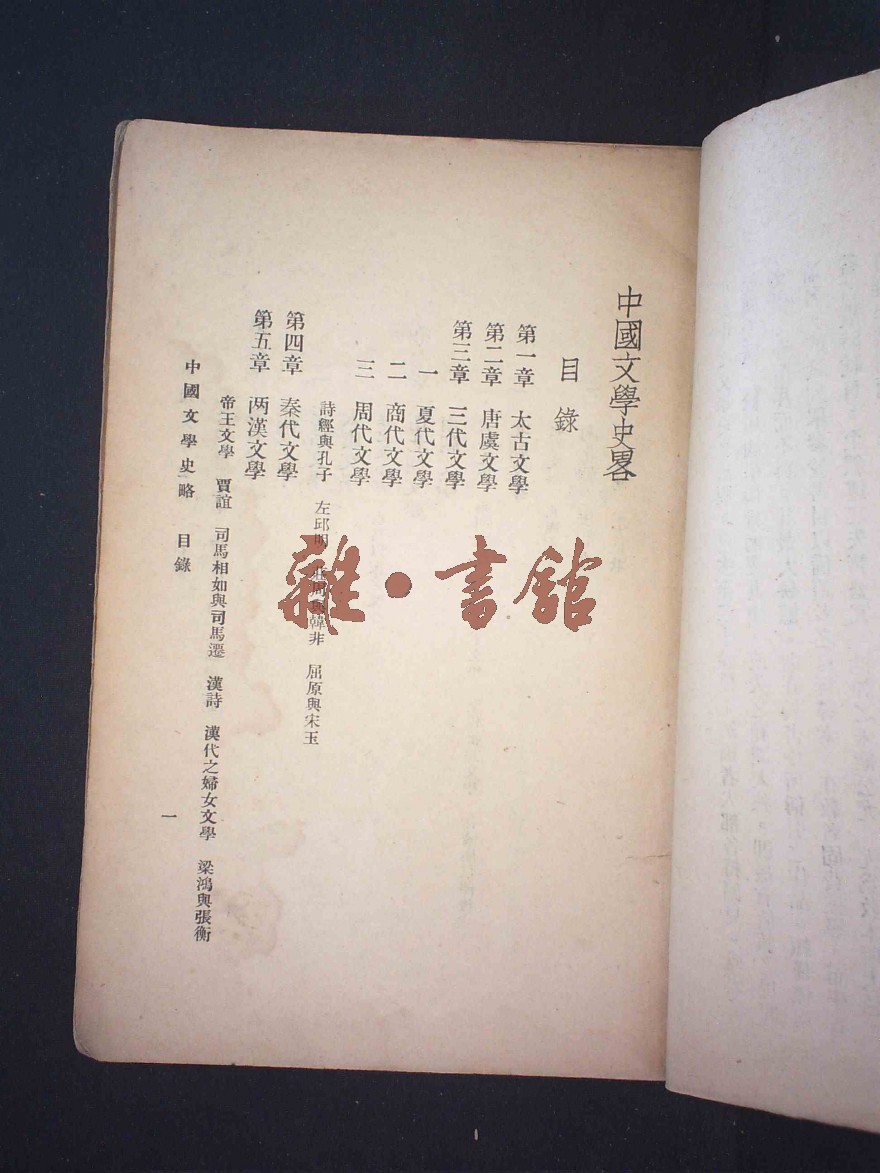 中國文學史畧
目錄
第一章 太古文學
第二章 唐虞文學
第三章 三代文學
一 夏代文學
二 商代文學
三 周代文學
詩經與孔子 左邱明 莊周與韓非 屈原與宋玉
第四章 秦代文學
第五章 两漢文學
帝王文學 賈誼 司馬相如與司馬遷 漢詩 漢代之婦女文學 梁鴻與張衡
中國文學史略 目錄
一
雜·書館